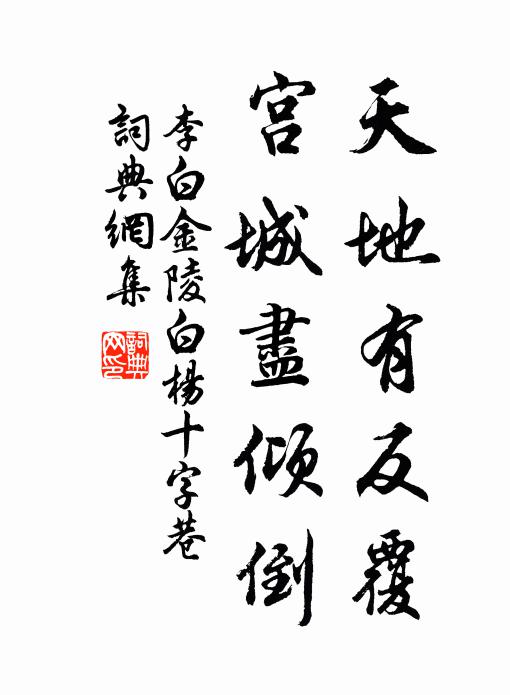 天地有反覆
宮城盡傾倒
李白金陵白楊十字巷
詞典網集
詞典網印